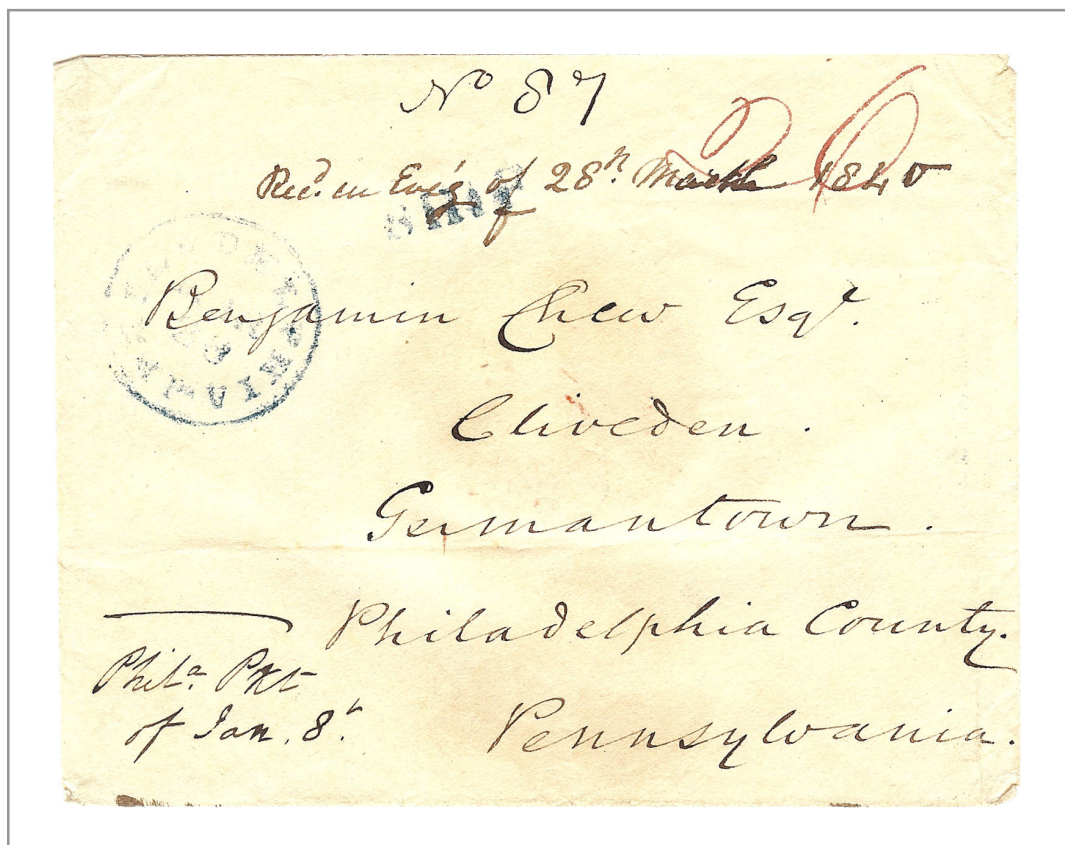 No 87
Rec.d in Ev'g of 28th. March 1840
SHIP
Benjamin Chew Esqr.
Cliveden.
Germantown.
Philadelphia County.
Pennsylvania.
Phila. Pkt
of Jan. 8th.